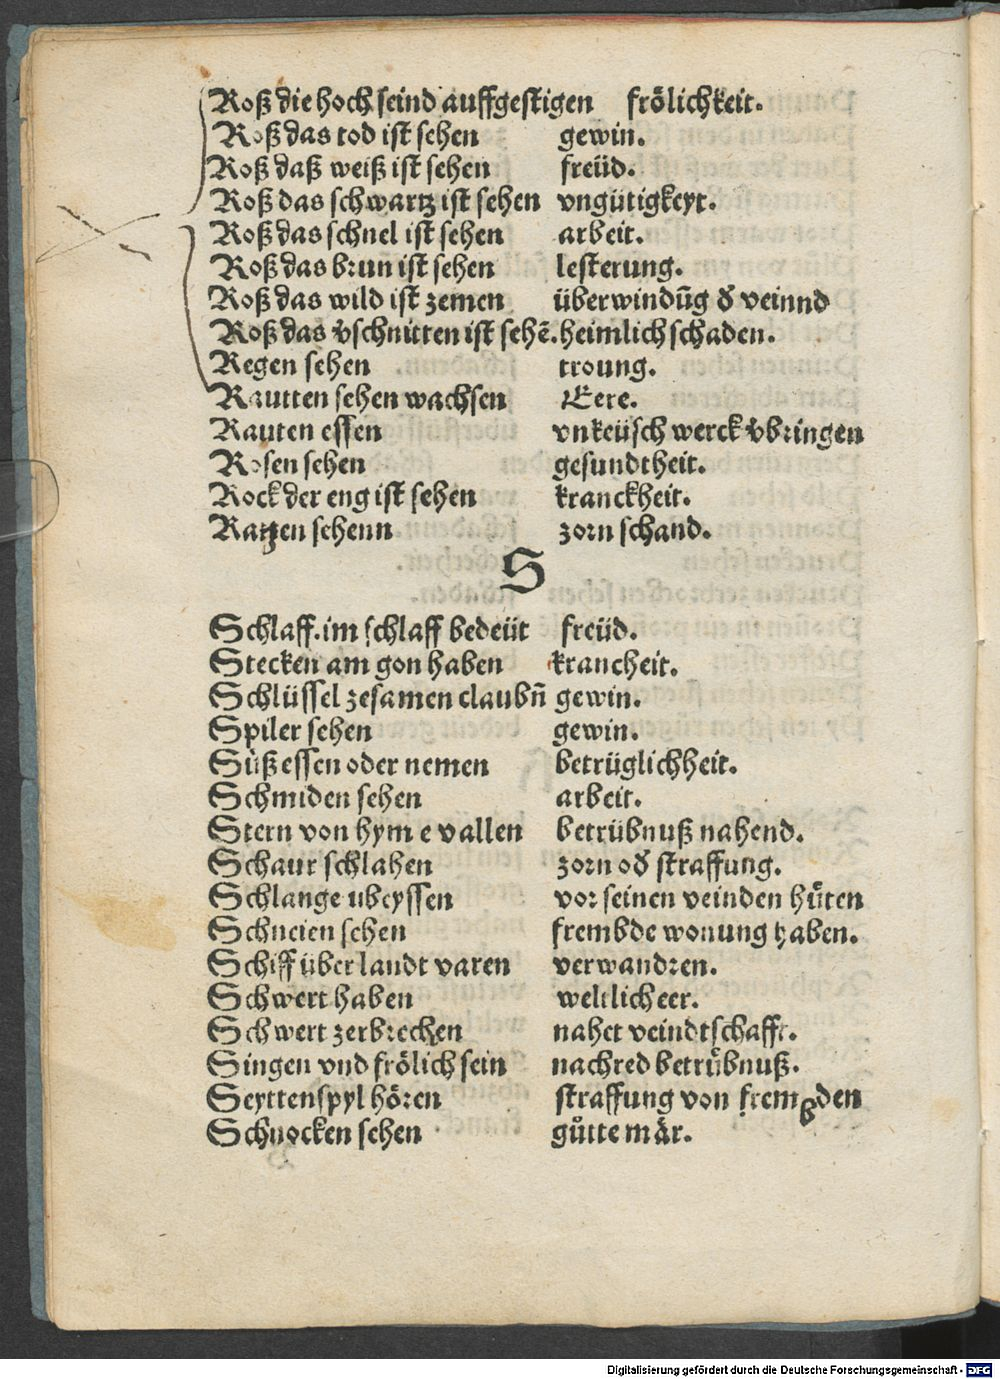 Roß die hoch seind auffgestigen frölichkeit.
Roß das tod ist sehen gewin.
Roß daß weiß ist sehen freüd.
Roß das schwartz ist sehen vngütigkeyt.
Roß das schnel ist sehen arbeit.
Roß das brun ist sehen lesterung.
Roß das wild ist zemen überwindũg d̃ veinnd
Roß das v̈schnitten ist sehẽ. heimlich schaden.
Regen sehen troung.
Rautten sehen wachsen Eere.
Rauten essen vnkeüsch werck v̈bringen
Rosen sehen gesundtheit.
Rock der eng ist sehen kranckheit.
Ratzen sehenn zorn schand.
S
Schlaff. im schlaff bedeüt freüd.
Stecken am gon haben krancheit.
Schlüssel zesamen claubñ gewin.
Spiler sehen gewin.
Süß essen oder nemen betrüglichheit.
Schmiden sehen arbeit.
Stern von hym e vallen betrübnuß nahend.
Schaur schlahen zorn od̃ straffung.
Schlange ubeyssen vor seinen veinden hüten
Schneien sehen frembde wonung haben.
Schiff über landt varen verwandren.
Schwert haben weltlich eer.
Schwert zerbrechen nahet veindtschafft.
Singen vnd frölich sein nachred betrübnuß.
Seyttenspyl hören straffung von fremßden
Schnocken sehen gůtte mär.
Digitalisierung gefördert durch die Deutsche Forschungsgemeinschaft - DFG